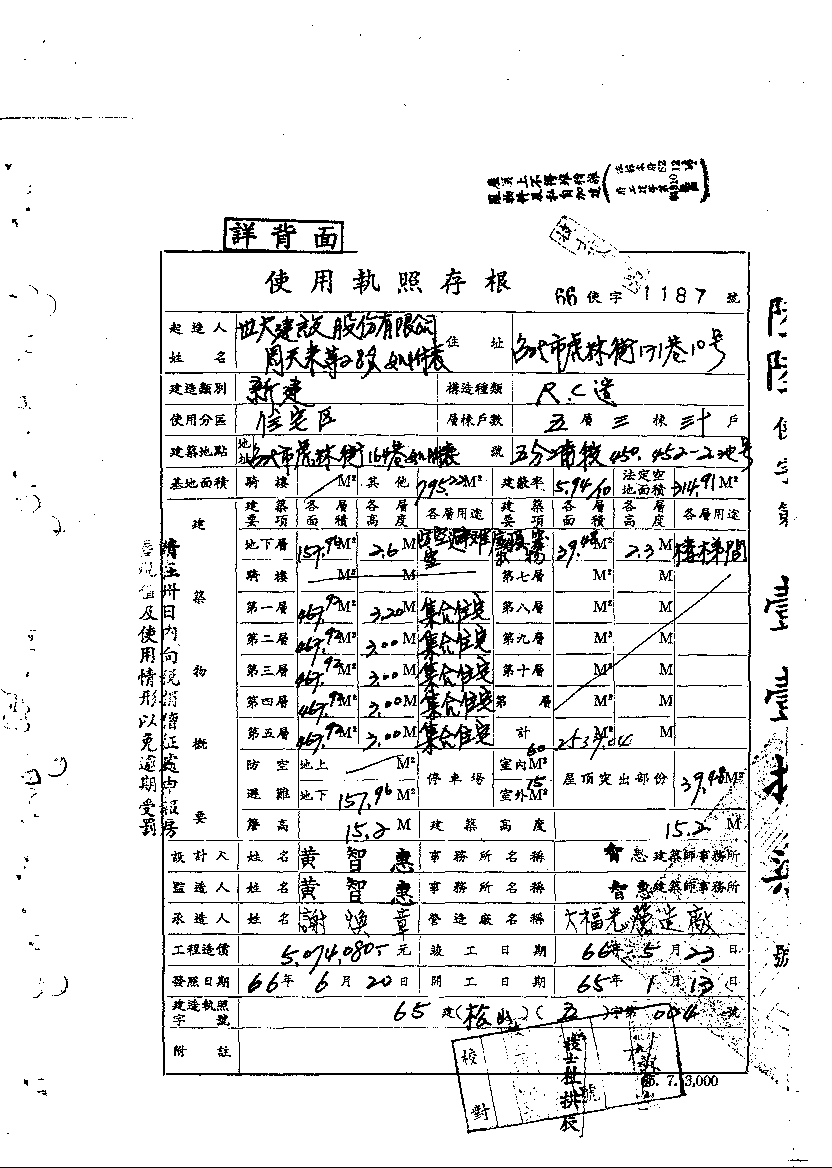 詳背面
使用執照存根
66使字1187號
起造人姓名 世大建設股份有限公司 住址
周天來等28名如附表 台北市虎林街131巷10号
建造類別 新建 構造種類 R.C造
使用分區 住宅区 層棟戶數 五層三棟三十戶
建築地點 地址 台北市虎林街164巷如附表號 五分埔段450.452-2
基地面積 騎樓 M² 其他 795.22M² 建蔽率 5.94/10 法定空地面積 314.91M²
建築物概要 建築要項 各層面積 各層高度 各層用途 建築要項 各層面積 各層高度 各層用途
地下層 157.96M² 2.6M 防空避難室 39.48M² 2.3M 樓梯間
騎樓 M² M 第七層 M² M
第一層 467.92M² 3.20M 集合住宅 第八層 M² M
第二層 467.92M² 3.00M 集合住宅 第九層 M² M
第三層 467.92M² 3.00M 集合住宅 第十層 M² M
第四層 467.92M² 3.00M 集合住宅 第 層 M² M
第五層 467.92M² 3.00M 集合住宅 計 2537.04M² M
防空避難 地上 M² 停車場 室內M² 60 屋頂突出部份 39.48M²
地下 157.96M² 室外M² 15
簷高 15.2M 建築高度 15.2M
設計人 姓名 黃智惠 事務所名稱 智惠建築師事務所
監造人 姓名 黃智惠 事務所名稱 智惠建築師事務所
承造人 姓名 謝煥章 營造廠名稱 大福光營造廠
工程造價 5,074,080元 竣工日期 66年5月23日
發照日期 66年6月20日 開工日期 65年1月13日
建造執照字號 65建(松山)(五)字第004號
附註
校對
66.7.3,000
請在卅日內向稅捐稽征處申報房
屋現值及使用情形以免逾期受罰